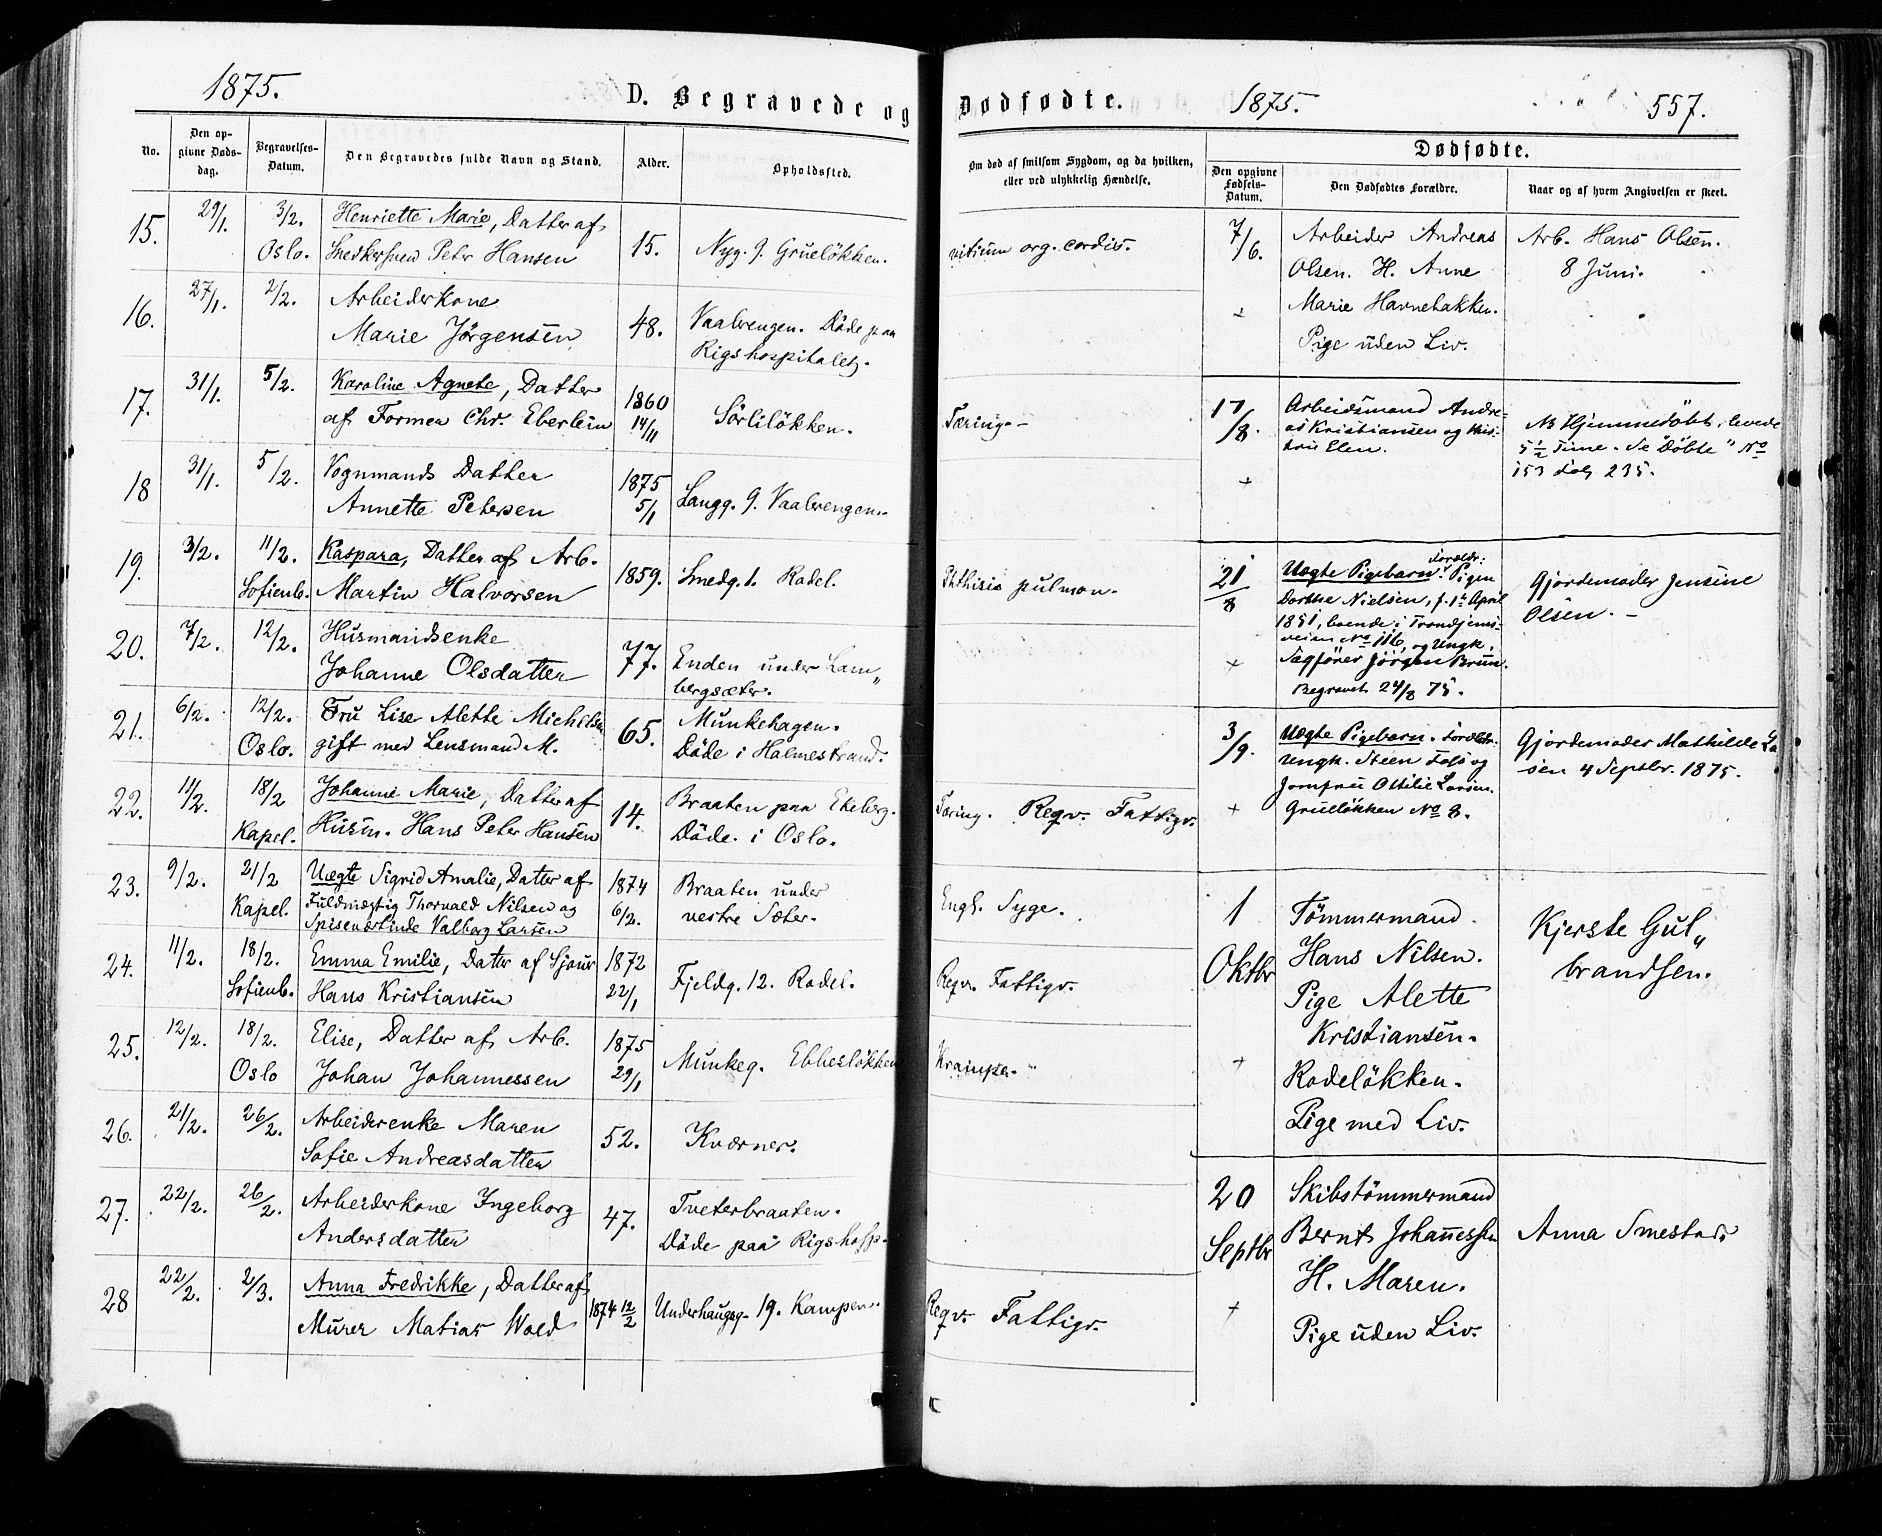 1875.
D. Begravede og Dødfødte.
1875.
557.
No.
Den opgivne Døds-
dag.
Begravelses-
Datum.
Den Begravedes fulde Navn og Stand.
Alder.
Opholdssted.
Om død af smitsom Sygdom, og da hvilken,
eller ved ulykkelig Hændelse.
Dødfødte.
Den opgivne
Fødsels-
Datum.
Den Dødfødtes Forældre.
Naar og af hvem Angivelsen er skeet.
15. 29/1. 3/2. Henriette Marie, Datter af
Oslo. Snedkersvend Peter Hansen 15. Nyg. 9. Grueløkken. vitium org. cordis.
16. 27/1. 2/2. Arbeiderkone
Marie Jørgensen 48. Vaalerengen. Døde paa
Rigshospitalet.
17. 31/1. 5/2. Karoline Agnete, Datter 1860
af Former Chr. Eberlein 14/11 Sørliløkken. Tæring.
18 31/1. 5/2. Vognmands Datter 1875
Annette Petersen 5/1 Langg. 9. Vaalerengen.
19. 3/2. 11/2. Kaspara, Datter af Arb.
Sofienb. Martin Halvorsen 1859. Smedg. 1. Rodel. Phthisis pulmon.
20. 7/2. 12/2. Husmandsenke
Johanne Olsdatter 77. Enden under Lam„
bergsæter.
21. 6/2. 12/2. Fru Lise Alette Michelsen
Oslo. gift med Lensmand M. 65. Munkehagen.
Døde i Holmestrand.
22. 11/2. 18/2 Johanne Marie, Datter af
Kapel. Husm. Hans Peter Hansen 14. Braaten paa Ekeberg.
Døde i Oslo. Tæring. Reqv. Fattigv.
23. 9/2. 21/2 Uægte Sigrid Amalie, Datter af 1874
Kapel. Fuldmægtig Thorvald Nilsen og 6/2. Braaten under
Spiseværtinde Valborg Larsen vestre Sæter. Engl. Syge.
24. 11/2. 18/2. Emma Emilie, Datter af Sjouer 1872
Sofienb. Hans Kristiansen 22/1 Fjeldg. 12. Rodel. Reqv. Fattigv.
25. 12/2. 18/2. Elise, Datter af Arb. 1875
Oslo Johan Johannessen 29/1 Munkeg. Ebbesløkken Krampe.
26. 21/2. 26/2. Arbeiderenke Maren
Sofie Andreasdatter 52. Kværner.
27. 22/2. 26/2. Arbeiderkone Ingeborg
Andersdatter 47. Tveterbraaten.
Døde paa Rigshosp.
28 22/2. 2/3. Anna Fredrikke, Datter af
Murer Matias Wold 1874 12/2 Underhaugsg. 19. Kampen. Reqv. Fattigv.
7/6. Arbeider Andreas
Olsen. H. Anne
Marie Havnebakken.
Pige uden Liv.
Arb. Hans Olsen.
8 Juni.
17/8. Arbeidsmand Andre-
as Kristiansen og Hus-
tru Elen.
NB Hjemmedøbt, levede
5 1/2 Time. Se "Døbte" No
153 Fol. 235.
21/8 Uægte Pigebarn. Forældr: Pigen
Dorthe Nielsen, f. 1te April
1851, boende i Trondjems-
veien No 116, og Ungk.
Sagfører Jørgen Bruun.
Begravet 24/8 75.
Gjordemoder Jensine
Olsen.
3/9. Uægte Pigebarn. Forældr:
Ungk. Steen Foss og
Jomfru Ottilie Larsen.
Grueløkken No 8.
Gjordemoder Mathilde La
sen 4 Septbr. 1875.
1
Oktbr Tømmermand
Hans Nilsen.
Pige Alette
Kristiansen.
Rodeløkken.
Pige med Liv.
Kjerste Gul„
brandsen.
20
Septbr Skibstømmermand
Bernt Johannessen
H. Maren.
Pige uden Liv.
Anna Smestad.